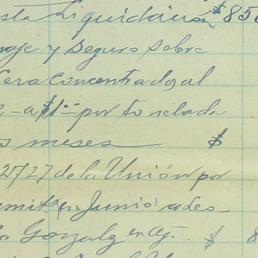 sta Liquidación $850
naje y Seguro sobre
era concentrado al
a $1.- por tonelada
s meses $
2727 de la Unión por
en Junio
Gonzalez en cg. $ 8